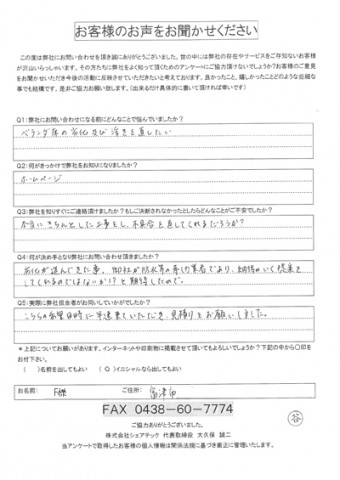 お客様のお声をお聞かせください
この度は弊社にお問い合わせを頂き誠にありがとうございました。世の中には弊社の存在やサービスをご存知ないお客様
が沢山いらっしゃいます。その方たちに弊社をよく知って頂くためのアンケートにご協力頂けないでしょうか?お客様のご意見
をお聞かせいただき今後の活動に反映させていただきたいと考えております。良かったこと、嬉しかったことどのような些細な
事でも結構です。是非ご協力お願い致します。(出来るだけ具体的に書いて頂ければ幸いです)
Q1:弊社にお問い合わせになる前にどんなことで悩んでいましたか?
ベランダ床の劣化及び浮きを直したい
Q2:何がきっかけで弊社をお知りになりましたか?
ホームページ
Q3:弊社を知りすぐにご連絡頂けましたか?もしご決断されなかったとしたらどんなことがご不安でしたか?
本当にきちんとした工事をし、不具合を直してくれるだろうか?
Q4:何が決め手となり弊社にお問い合わせ頂けましたか?
劣化が進んできた事。御社が防水等の専門業者であり、期待のいく提案を
してくれるのではないか!?と期待したので。
Q5:実際に弊社担当者がお伺いしていかがでしたか?
こちらの希望日時に早速来ていただき、見積りをお願いしました。
*上記についてお願いがあります。インターネットや印刷物に掲載させて頂いてもよろしいでしょうか?下記の中から〇印を
お付け下さい。
( )名前を出してもよい ( ○ )イニシャルなら出してもよい
お名前: F様 ご住所: 富津市
FAX 0438-60-7774
ご協力ありがとうございました。
株式会社シェアテック 代表取締役 大久保 誠二
当アンケートで取得したお客様の個人情報は関係法規に基づき厳正に管理いたします。